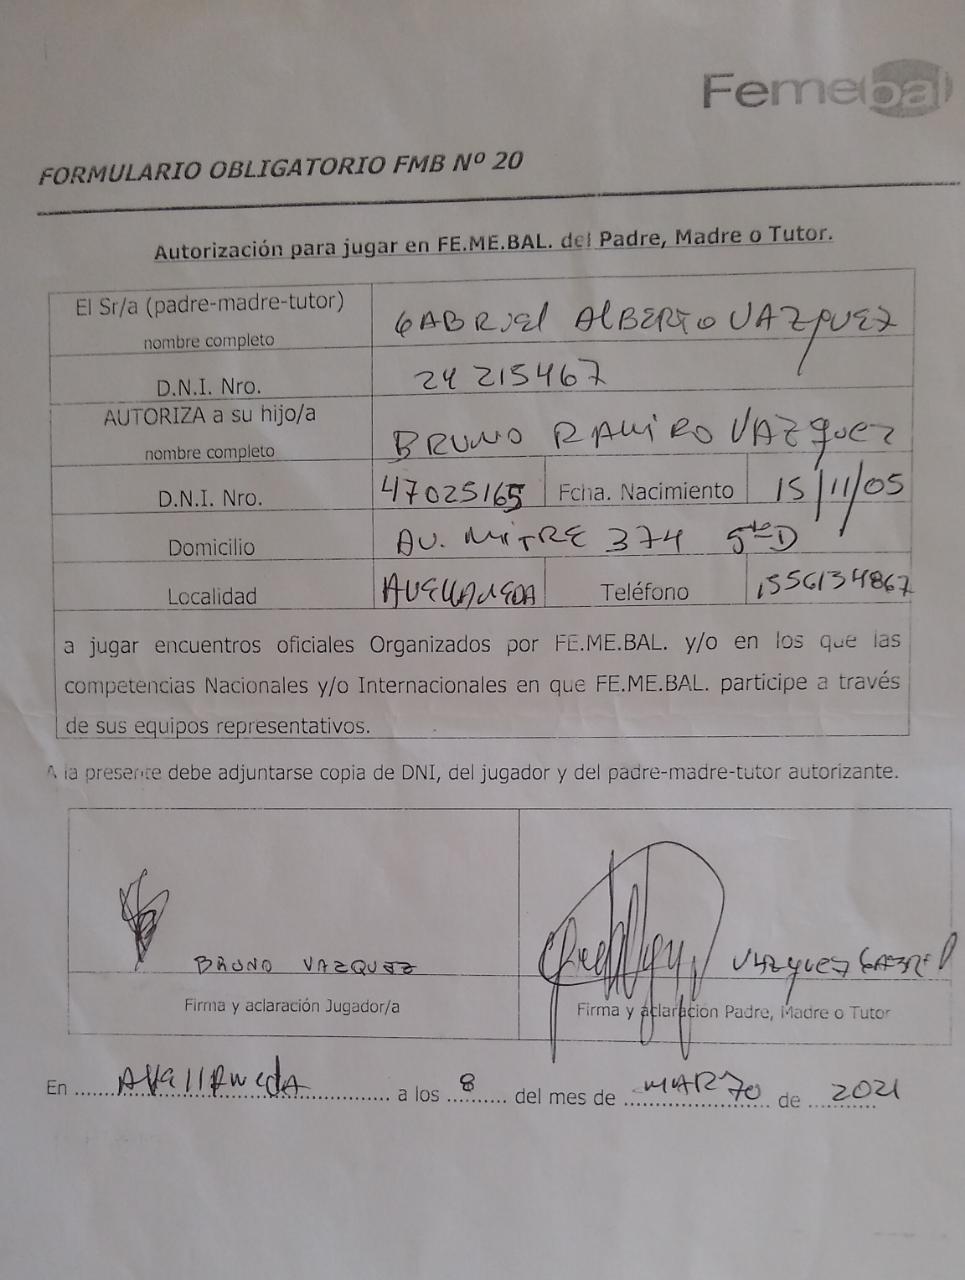 Femebal
FORMULARIO OBLIGATORIO FMB Nº 20
Autorización para jugar en FE.ME.BAL. del Padre, Madre o Tutor.
El Sr/a (padre-madre-tutor)
nombre completo
GABRIEL ALBERTO VAZQUEZ
D.N.I. Nro. 24 215467
AUTORIZA a su hijo/a
nombre completo
BRUNO RAMIRO VAZQUEZ
D.N.I. Nro. 47025165 Fcha. Nacimiento 15/11/05
Domicilio AV. MITRE 374 5to D
Localidad AVELLANEDA Teléfono 1556134867
a jugar encuentros oficiales Organizados por FE.ME.BAL. y/o en los que las
competencias Nacionales y/o Internacionales en que FE.ME.BAL. participe a través
de sus equipos representativos.
A la presente debe adjuntarse copia de DNI, del jugador y del padre-madre-tutor autorizante.
BRUNO VAZQUEZ
Firma y aclaración Jugador/a
VAZQUEZ GABRIEL
Firma y aclaración Padre, Madre o Tutor
En AVELLANEDA a los 8 del mes de MARZO de 2021